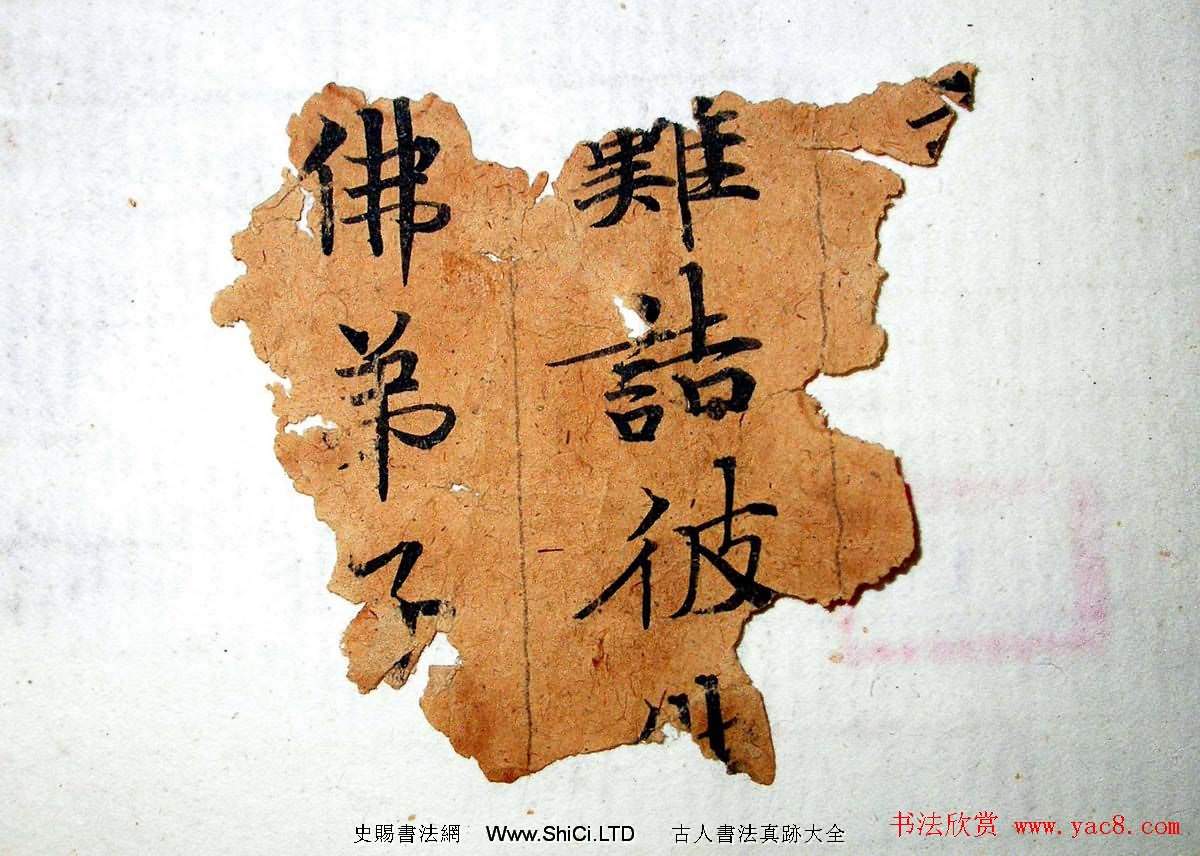 難詰彼
佛弟子
史賜書法網 Www.ShiCi.LTD 古人書法真跡大全
书法欣赏 www.yac8.com